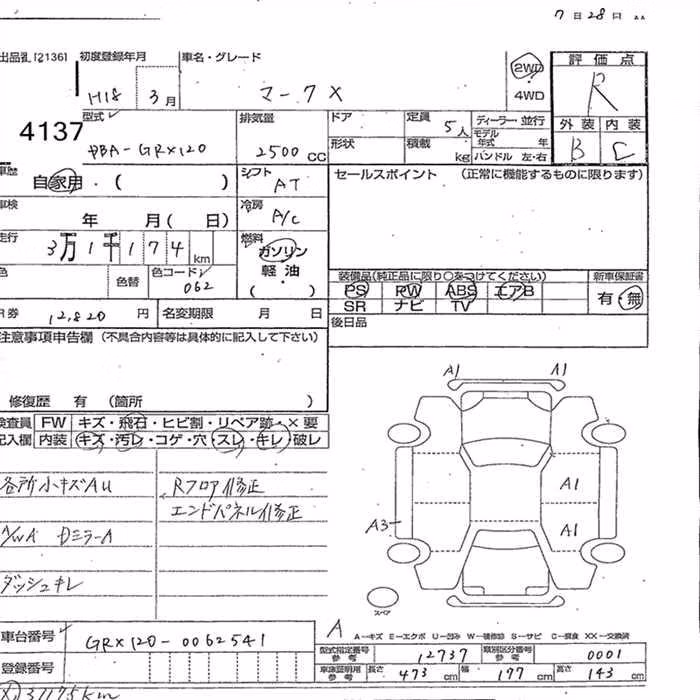 7 日 28 日
出品番 [2136]
初度登録年月
車名・グレード
H18 3 月
マークX
2WD
4WD
評価点
R
外装 内装
B C
4137
型式
DBA-GRX120
排気量
2500 CC
ドア
形状
定員 5 人
積載 kg
ディーラー 並行
モデル年式 年
ハンドル 左・右
車歴
自家用・( )
シフト
AT
セールスポイント (正常に機能するものに限ります)
車検
年 月( 日)
冷房
A/C
走行
3万1千174 km
燃料
ガソリン
軽・油
( )
色
色替
色コード
062
装備品(純正品に限り○をつけてください)
新車保証書
PS PW ABS エアB
SR ナビ TV
有・無
R券 12,820 円
名変期限 月 日
後日品
注意事項申告欄 (不具合内容等は具体的に記入して下さい)
修復歴 有 (箇所 )
検査員
記入欄
FW キズ・飛石・ヒビ割・リペア跡・×要
内装 キズ・汚レ・コゲ・穴・スレ・キレ・破レ
A1 A1
A1
A1
A3
スペア
各所小キズAU
Rフロア修正
エンドパネル修正
A/WA DミラーA
ダッシュキレ
車台番号
GRX120-0062541
登録番号
A
A-キズ E-エクボ U-凹み W-補修跡 S-サビ C-腐食 XX-交換済
型式指定番号 参考 12737
類別区分番号 参考 0001
車庫証明用 参考
長さ 473 cm
幅 177 cm
高さ 143 cm
31175km